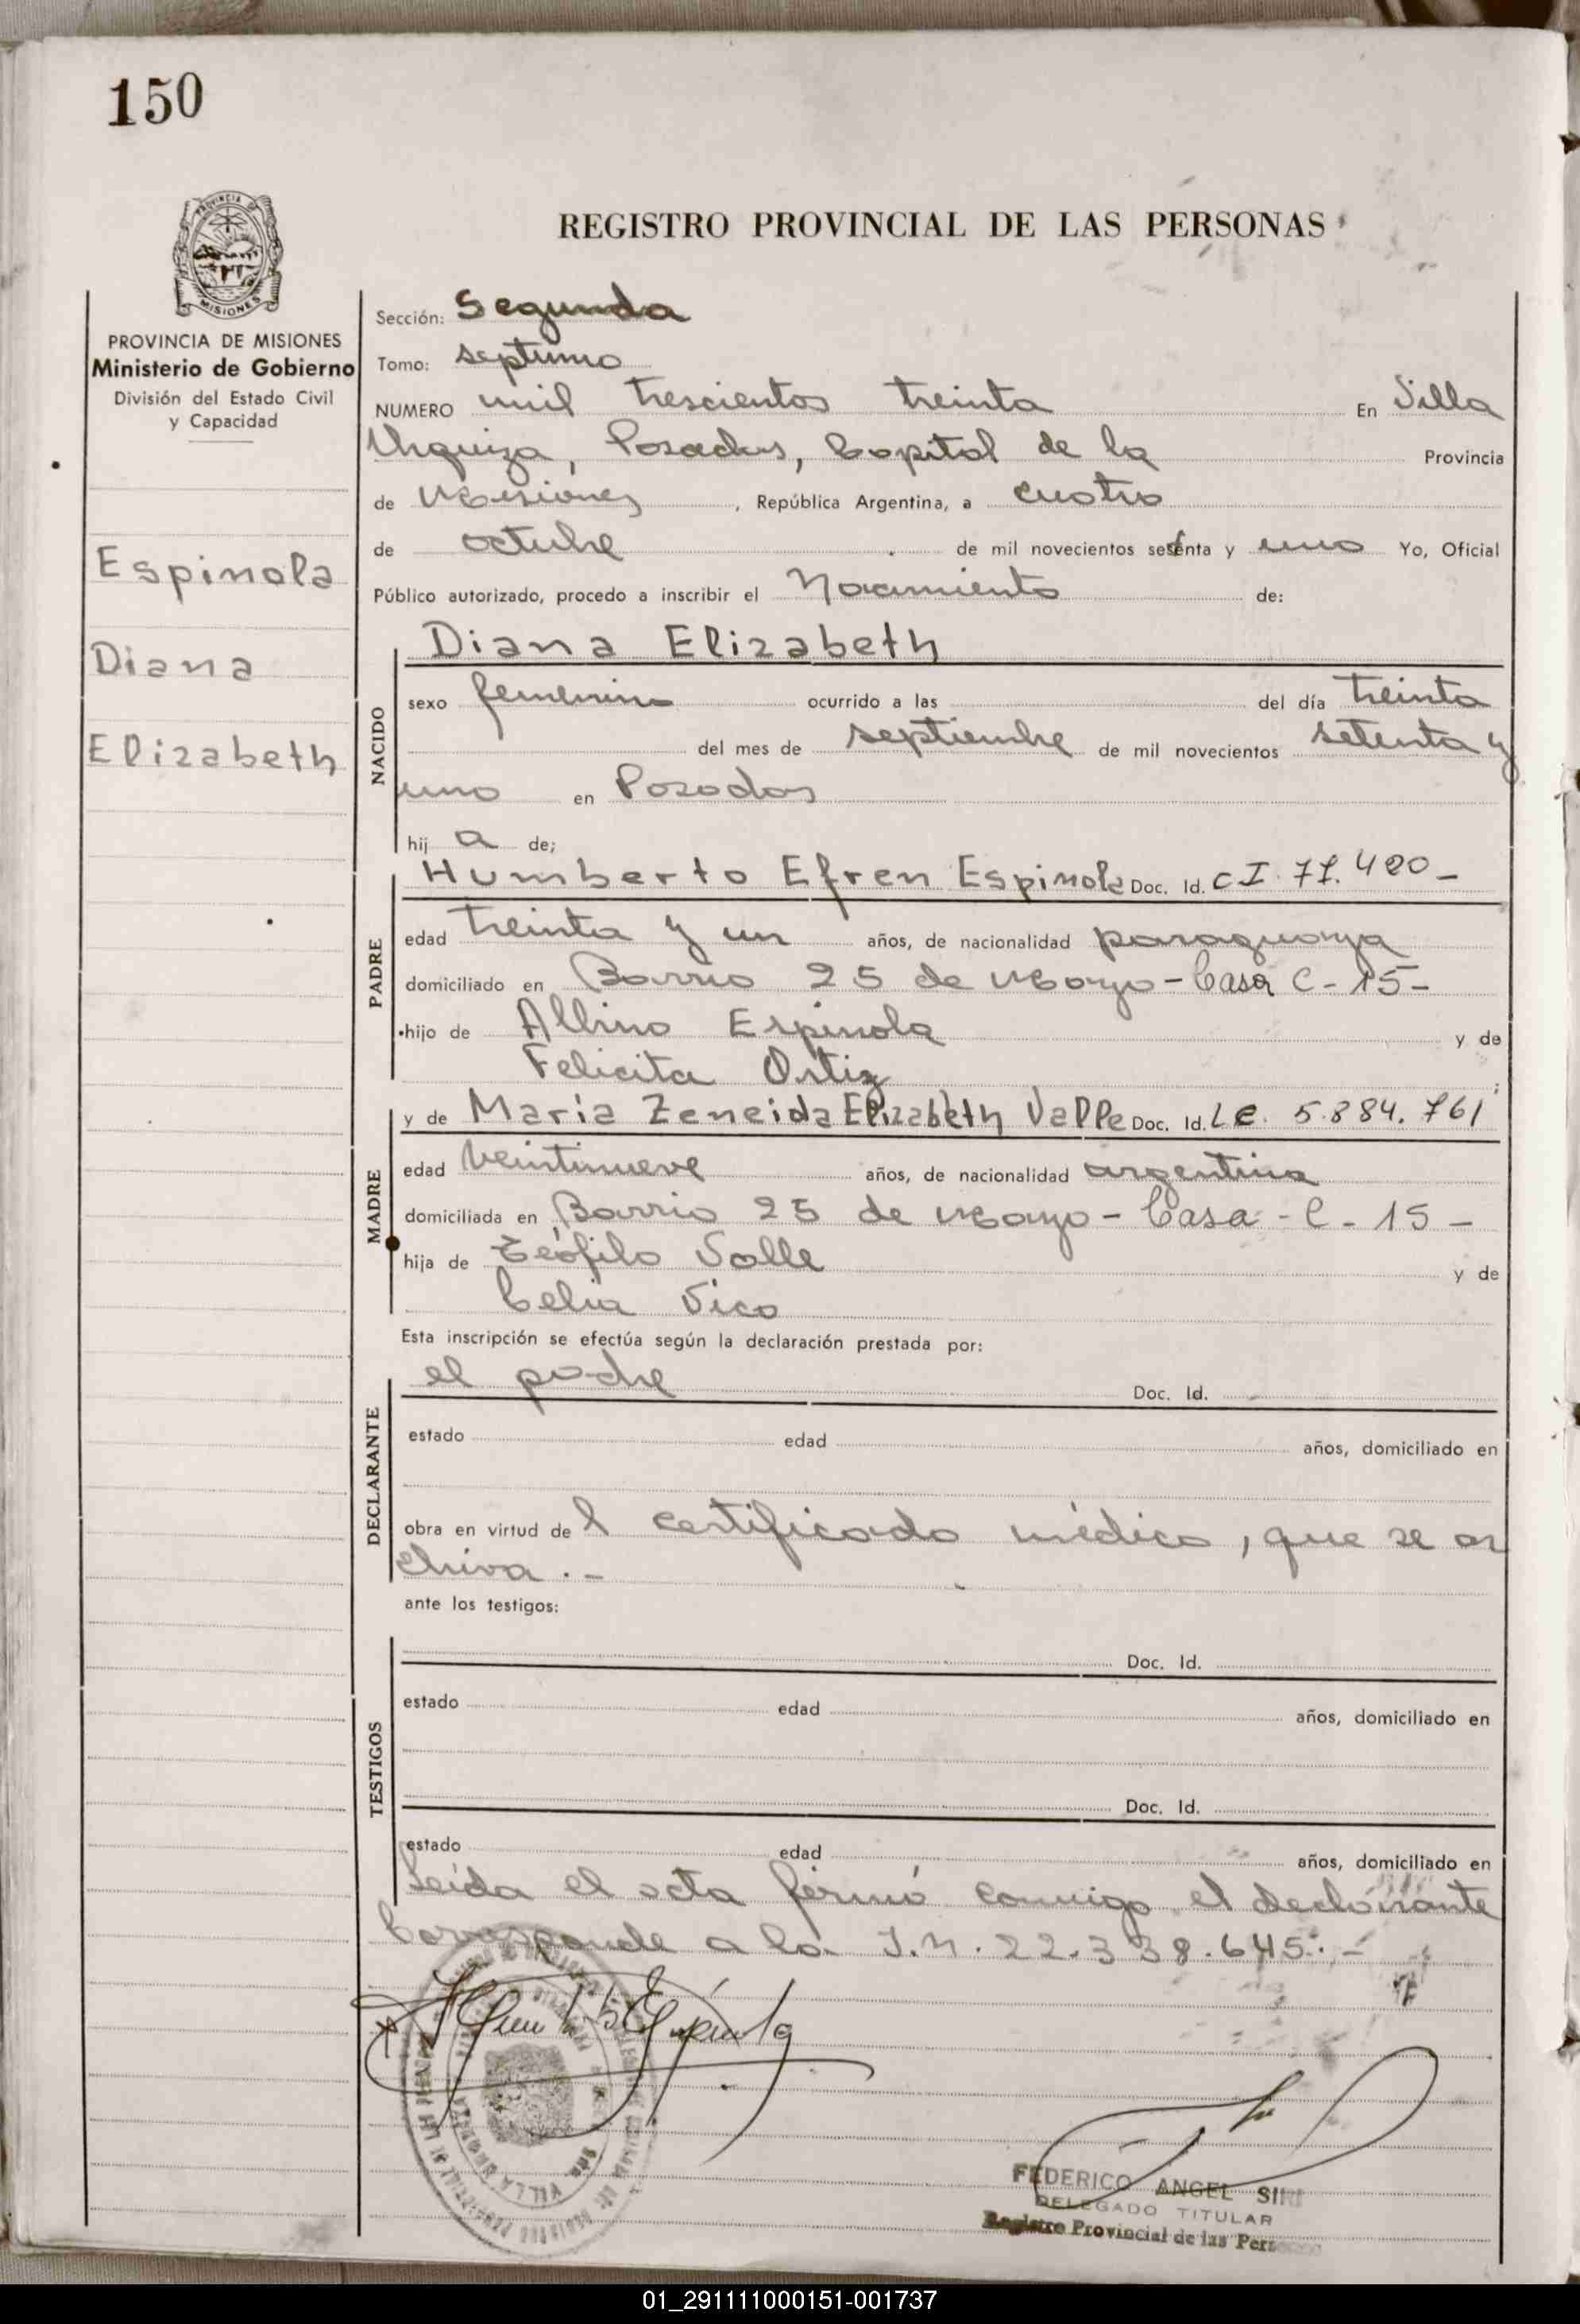 150
PROVINCIA DE
MISIONES
REGISTRO PROVINCIAL DE LAS PERSONAS
PROVINCIA DE MISIONES
Ministerio de Gobierno
División del Estado Civil
y Capacidad
Espinola
Diana
Elizabeth
Sección: Segunda
Tomo: septimo
NUMERO mil trescientos treinta En Villa
Urquiza, Posadas, Capital de la Provincia
de Misiones, República Argentina, a cuatro
de octubre de mil novecientos setenta y uno Yo, Oficial
Público autorizado, procedo a inscribir el Nacimiento de:
NACIDO
Diana Elizabeth
sexo femenino ocurrido a las del día treinta
del mes de septiembre de mil novecientos setenta y
uno en Posadas
hij a de;
PADRE
Humberto Efren Espinola Doc. Id. CI. 77.480-
edad treinta y un años, de nacionalidad paraguaya
domiciliado en Barrio 25 de Mayo - Casa C-15-
hijo de Albino Espinola y de
Felicita Ortiz
MADRE
y de Maria Zeneida Elizabeth Valle Doc. Id. L.C. 5.884.761
edad veintinueve años, de nacionalidad argentina
domiciliada en Barrio 25 de Mayo - Casa - C - 15 -
hija de Teófilo Valle y de
Celia Vico
Esta inscripción se efectúa según la declaración prestada por:
DECLARANTE
el padre Doc. Id.
estado edad años, domiciliado en
obra en virtud de l certificado médico, que se ar
chiva.-
ante los testigos:
TESTIGOS
Doc. Id.
estado edad años, domiciliado en
Doc. Id.
estado edad años, domiciliado en
Leída el acta firmó conmigo el declarante
Corresponde a la I.N. 22.338.645.-
VILLA URQUIZA
FEDERICO ANGEL
DELEGADO TITULAR
Registro Provincial de las
01_291111000151-001737